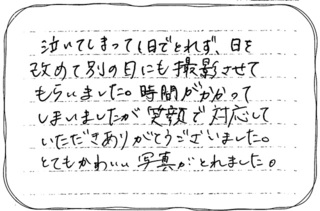 泣いてしまって1日でとれず、日を
改めて別の日にも撮影させて
もらいました。時間がかかって
しまいましたが笑顔で対応して
いただきありがとうございました。
とてもかわいい写真がとれました。